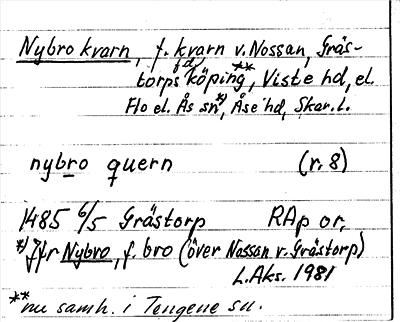 Nybro kvarn, f. kvarn v. Nossan, Gräs-
torps fd köping**, Viste hd, el.
Flo el. Ås sn*), Åse hd, Skar. l.
nybro quern (r. 8)
1485 6/5 Grästorp RAp or.
*) Jfr Nybro, f. bro (över Nossan v. Grästorp)
L. Aks. 1981
** nu samh. i Tengene sn.